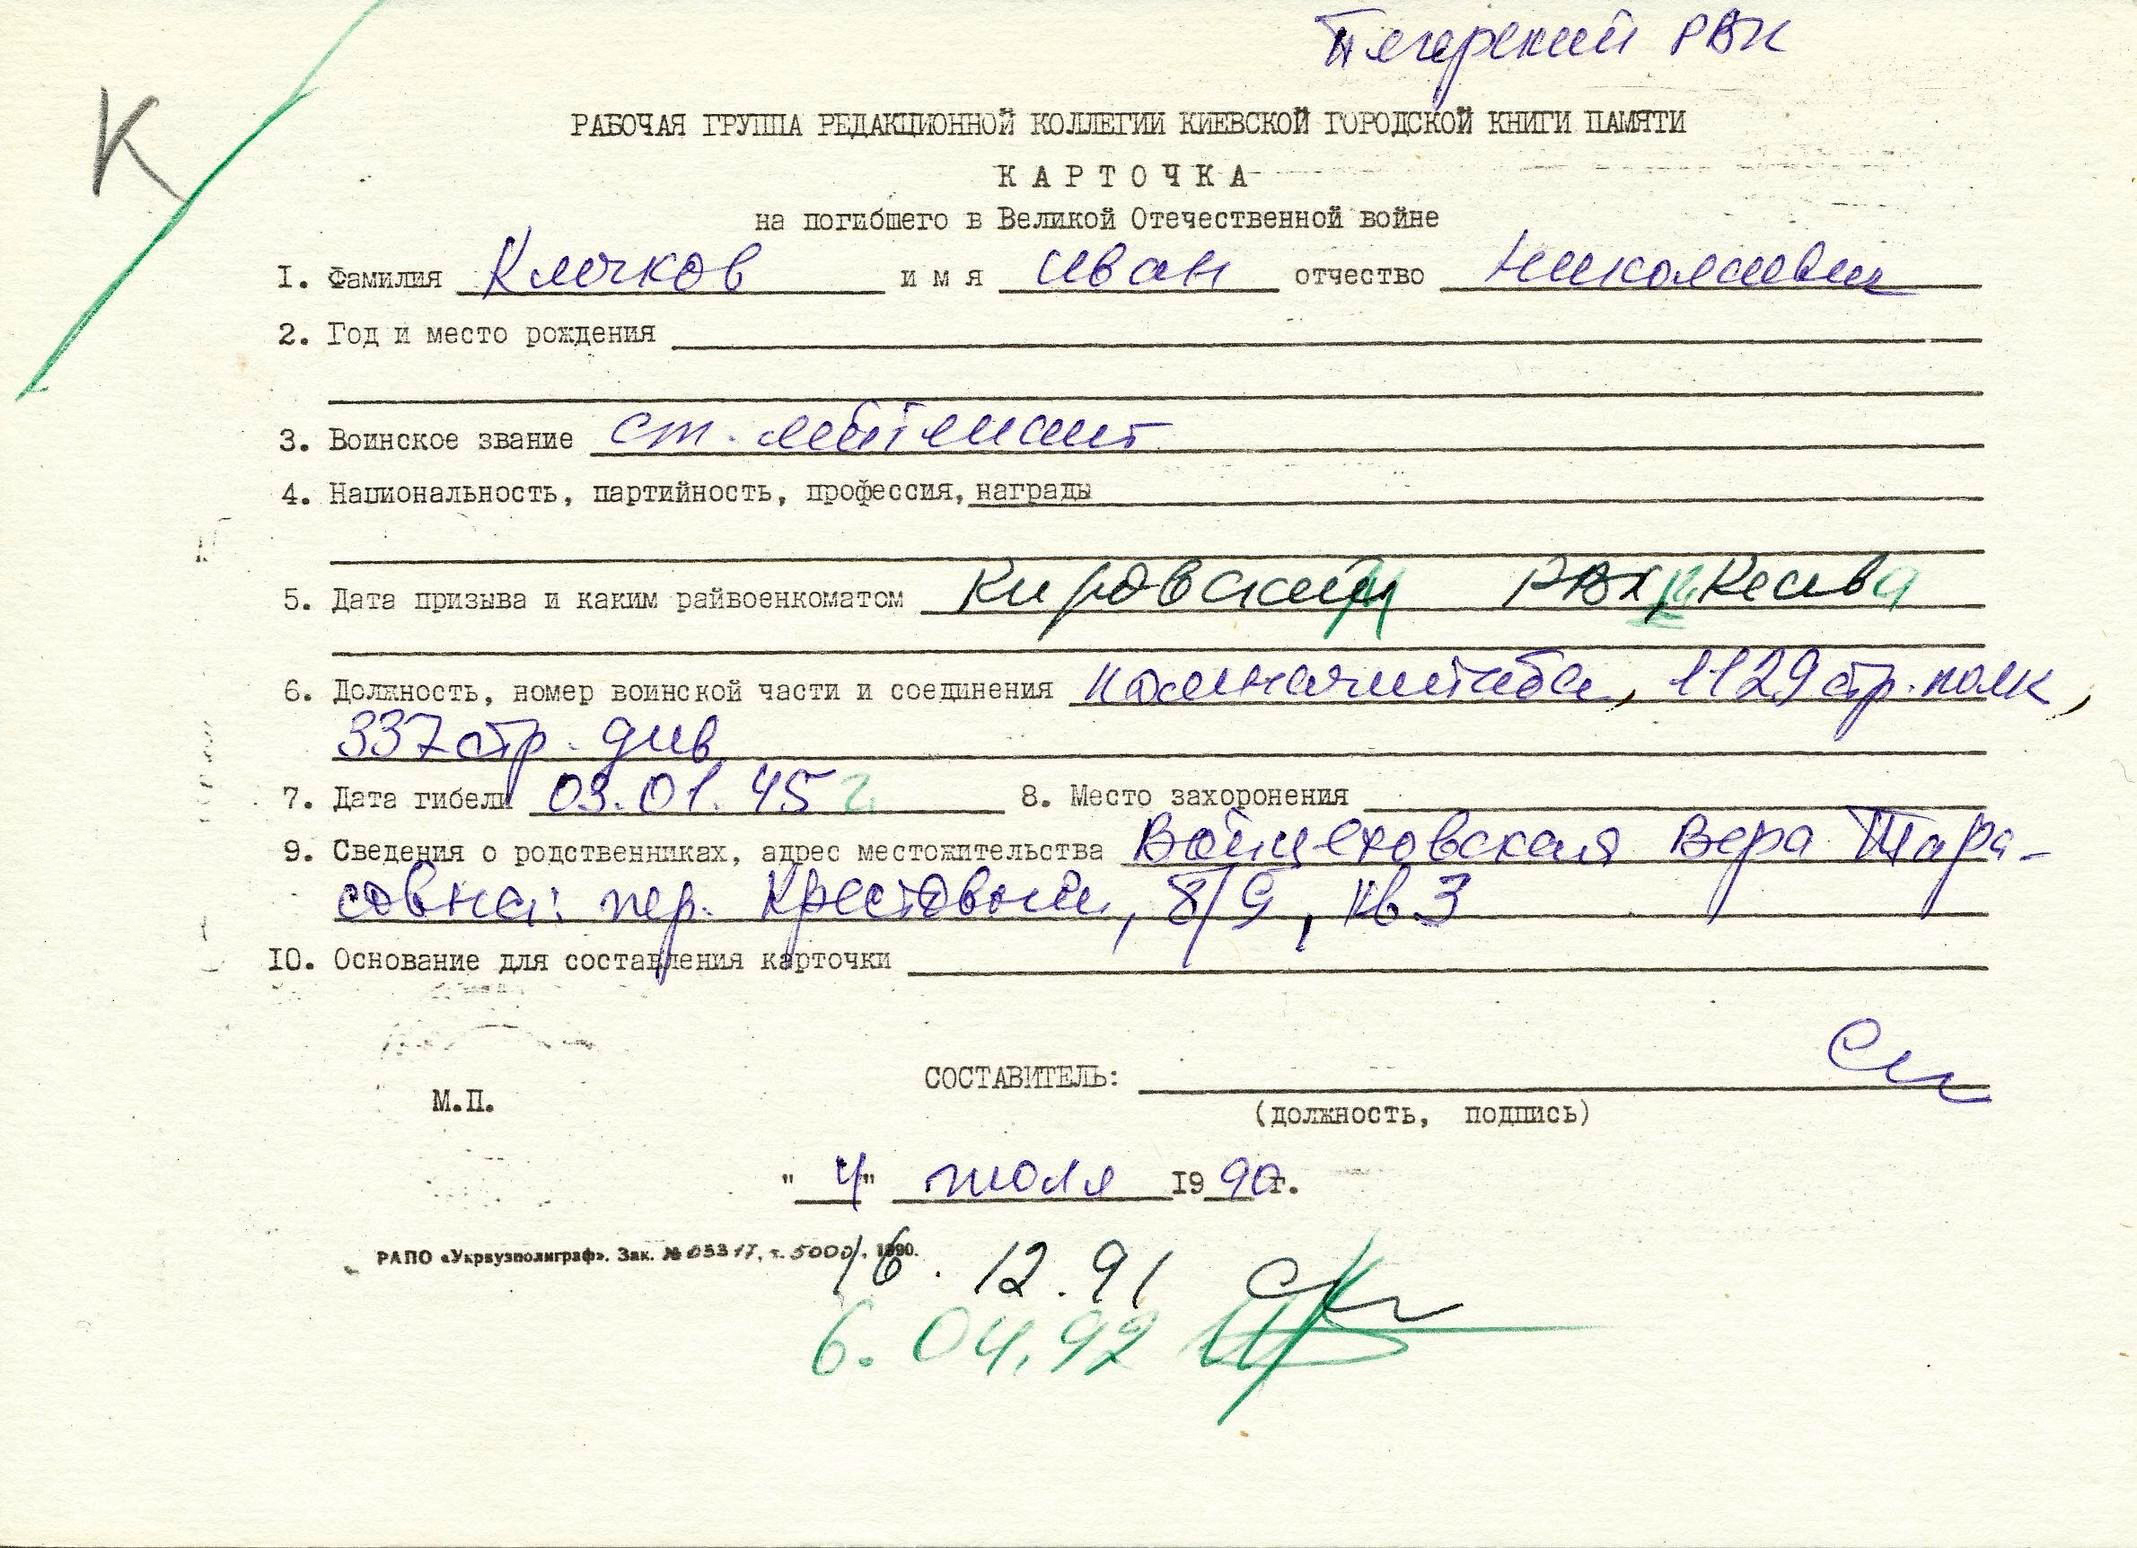 РВК
К
РАБОЧАЯ ГРУППА РЕДАКЦИОННОЙ КОЛЛЕГИИ КИЕВСКОЙ ГОРОДСКОЙ КНИГИ ПАМЯТИ
КАРТОЧКА
на погибшего в Великой Отечественной войне
1. Фамилия Клочков имя Иван отчество Николаевич
2. Год и место рождения
3. Воинское звание ст. лейтенант
4. Национальность, партийность, профессия, награды
5. Дата призыва и каким райвоенкоматом Кировским РВК, Киева
6. Должность, номер воинской части и соединения 1129 стр. полк,
337 стр. див
7. Дата гибели 03.01.45 г. 8. Место захоронения
9. Сведения о родственниках, адрес местожительства Войцеховская Вера Тара-
совна: пер. Крестовый, 8/9, кв. 3
10. Основание для составления карточки
СОСТАВИТЕЛЬ:
М.П.
(должность, подпись)
"4" июля 1990 г.
РАПО «Укрвузполиграф». Зак. № 05317, т. 5000, 1990.
16. 12. 91
6. 04. 92